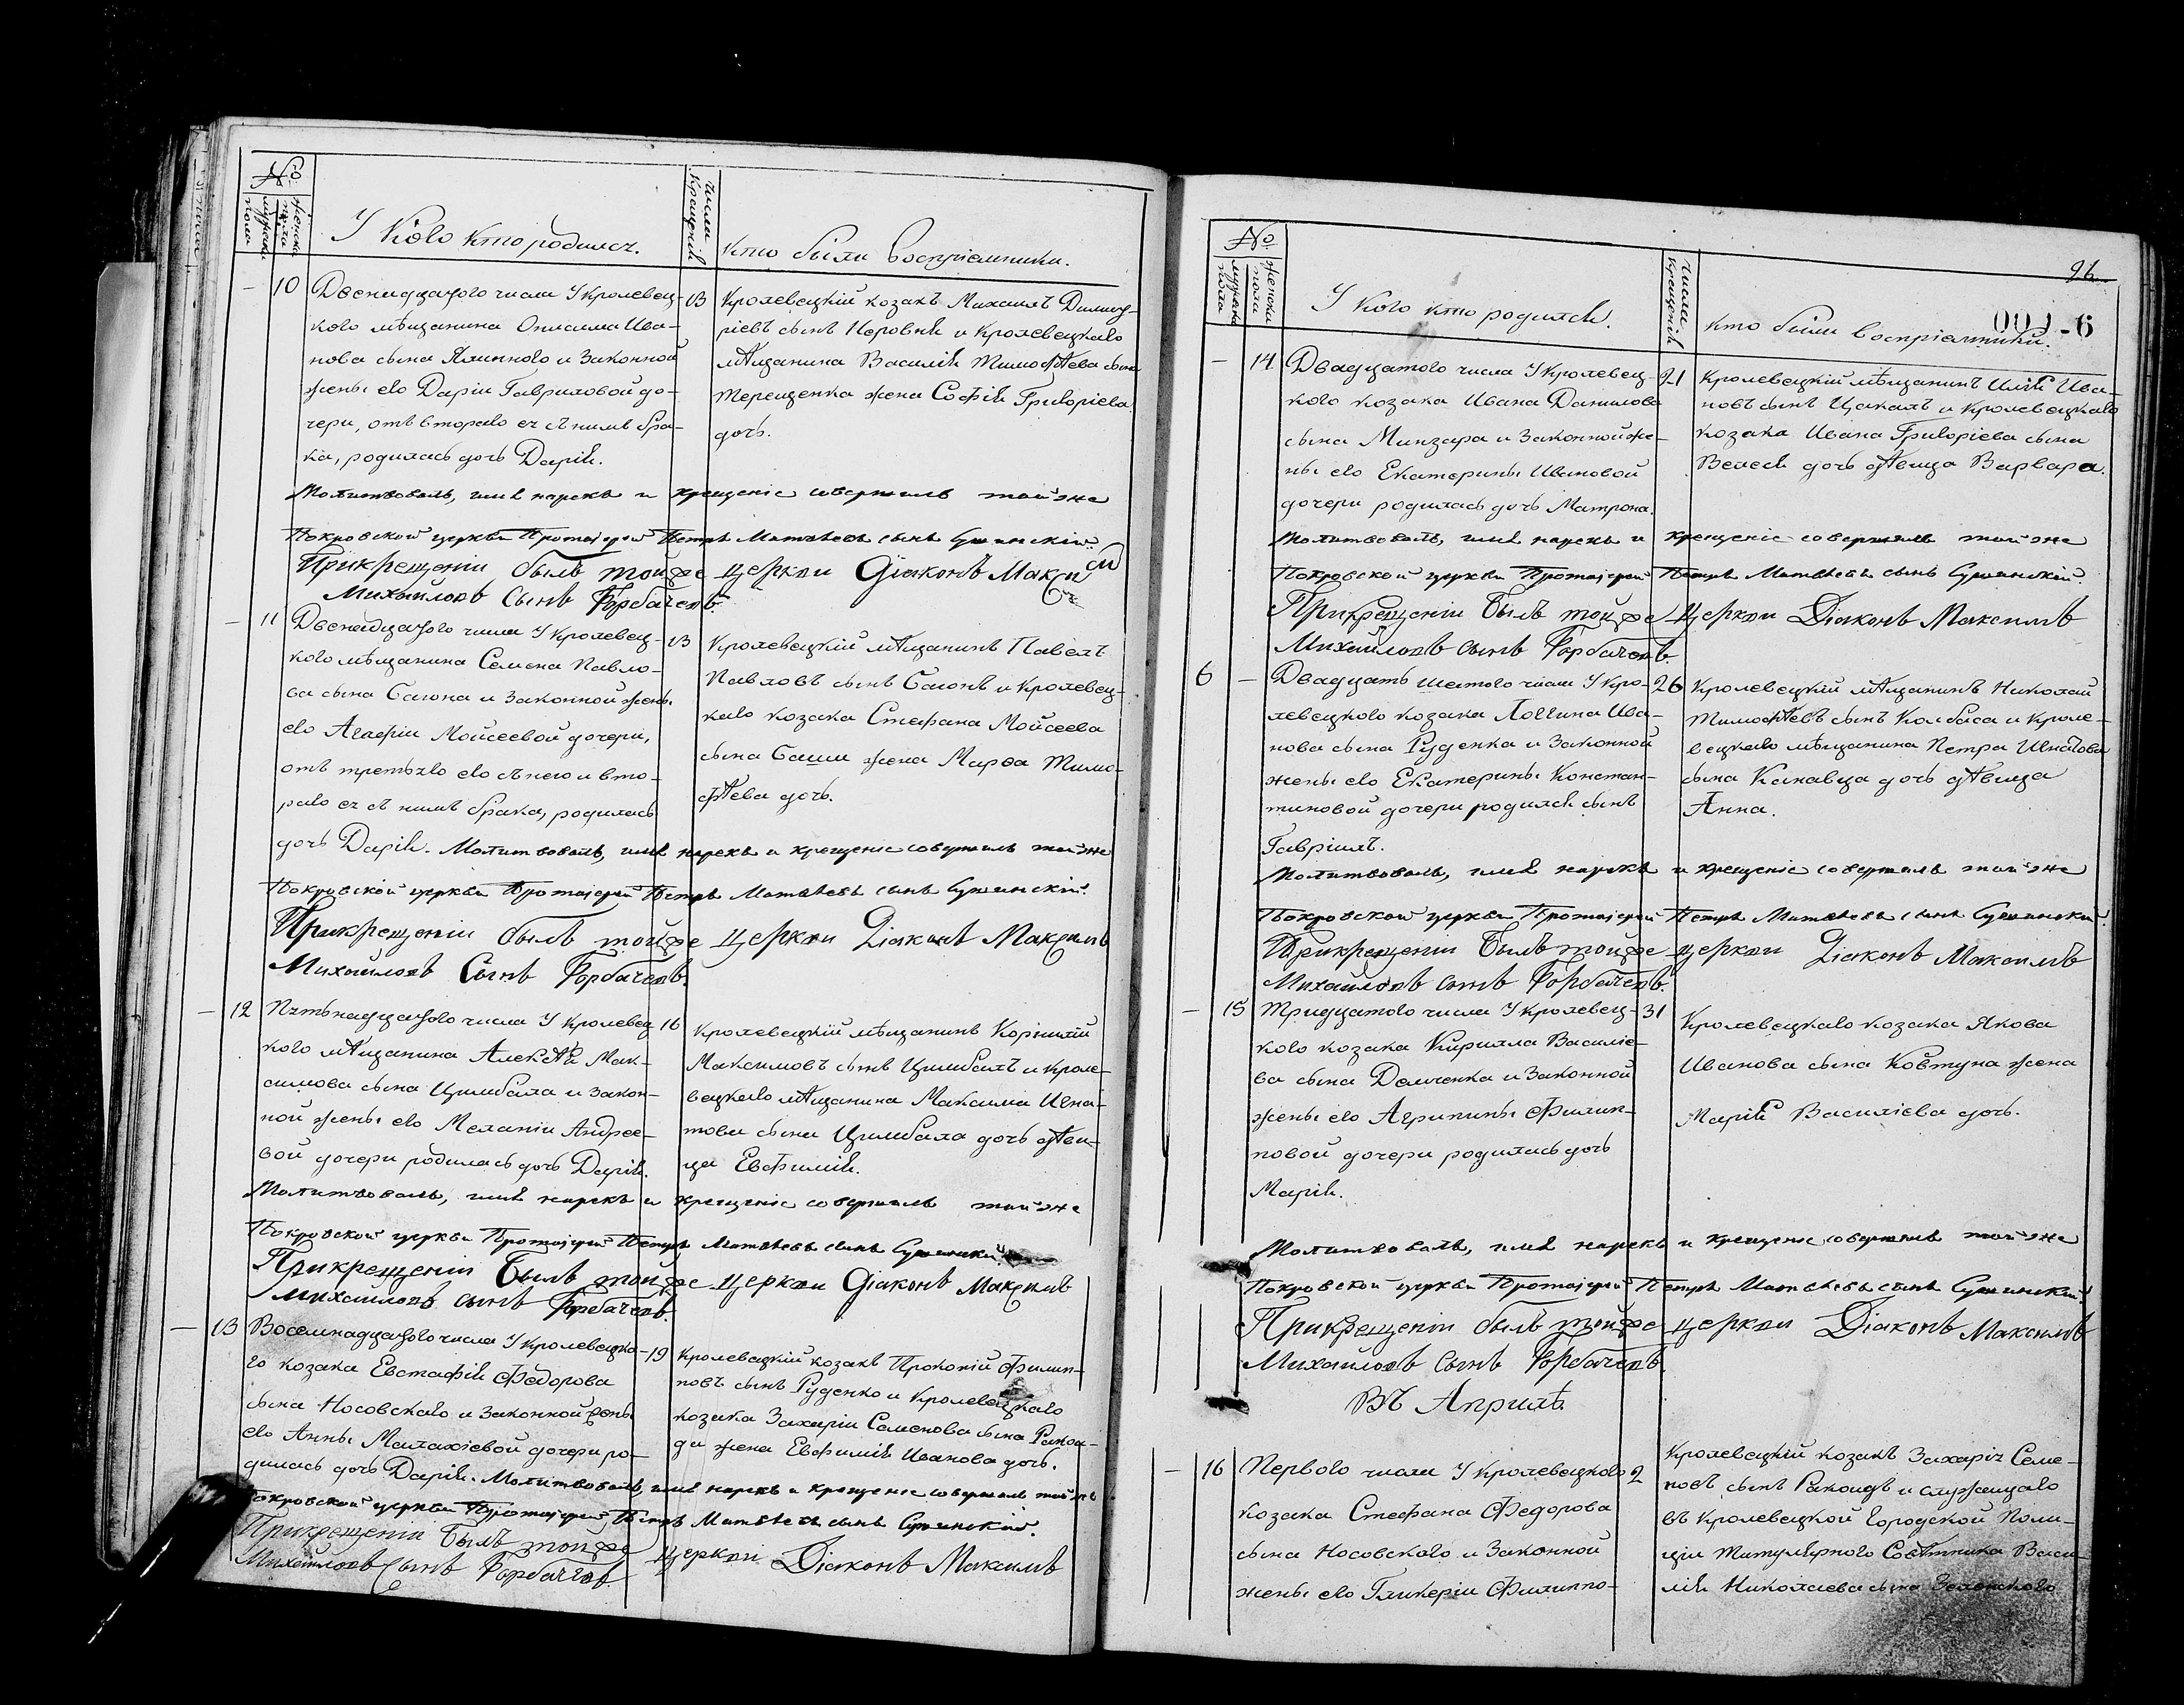 №
мужеска пола
женска пола
У кого кто родился.
Числа крещенія
Кто были воспріемники.
— 10
Двенадцатого числа У Кролевец-
кого мѣщанина Онисима Ива-
нова сына Ялинного и Законной
жены его Даріи Гавриловой до-
чери, отъ втораго ея съ нимъ бра-
ка, родилась дочь Дарія.
13
Кролевецкій козакъ Михаилъ Димит-
ріевъ сынъ Неровня и Кролевецкаго
мѣщанина Василія Тимофѣева сына
Терещенка жена Софія Григоріева
дочь.
Молитвовалъ, имя нарекъ и крещеніе совершилъ той же
Покровской церкви Протоіерей Петръ Матвѣевъ сынъ Сушинскій.
При крещеніи былъ той же церкви Діаконъ Максим
Михайловъ Сынъ Горбачевъ.
— 11
Двенадцатого числа У Кролевец-
кого мѣщанина Семена Павло-
ва сына Сагона и Законной жены
его Агафіи Мойсеевой дочери,
отъ третьяго его съ нею и вто-
раго ея съ нимъ брака, родилась
дочь Дарія.
13
Кролевецкій мѣщанинъ Павелъ
Павловъ сынъ Сагонъ и Кролевец-
каго козака Стефана Мойсеева
сына Саши жена Марфа Тимо-
фѣева дочь.
Молитвовалъ, имя нарекъ и крещеніе совершилъ той же
Покровской церкви Протоіерей Петръ Матвѣевъ сынъ Сушинскій.
При крещеніи былъ той же церкви Діаконъ Максимъ
Михайловъ Сынъ Горбачевъ.
— 12
Пятьнадцатого числа У Кролевец-
кого мѣщанина Алексѣя Мак-
симова сына Цимбала и закон-
ной жены его Меланіи Андрее-
вой дочери родилась дочь Дарія.
16
Кролевецкій мѣщанинъ Корнилій
Максимовъ сынъ Цимбалъ и Кроле-
вецкаго мѣщанина Максима Игна-
това сына Цимбала дочь дѣви-
ца Евфимія.
Молитвовалъ, имя нарекъ и крещеніе совершилъ той же
Покровской церкви Протоіерей Петръ Матвѣевъ сынъ Сушинскій.
При крещеніи Былъ той же церкви Діаконъ Максимъ
Михайловъ сынъ Горбачевъ.
— 13
Восемнадцатого числа У Кролевецко-
го козака Евстафія Федорова
сына Носовскаго и Законной жены
его Анны Малахіевой дочери ро-
дилась дочь Дарія.
19
Кролевецкій козакъ Прокопій Филип-
повъ сынъ Руденко и Кролевецкаго
козака Захаріи Семенова сына Ракои-
да жена Евфимія Иванова дочь.
Молитвовалъ, имя нарекъ и крещеніе совершилъ той же
Покровской церкви Протоіерей Петръ Матвѣевъ сынъ Сушинскій.
При крещеніи Былъ той же церкви Діаконъ Максимъ
Михайловъ Сынъ Горбачевъ
96
001-6
№
мужеска пола
женска пола
У кого кто родился.
Числа крещенія
Кто были воспріемники.
— 14
Двадцатого числа У Кролевец-
кого козака Ивана Данилова
сына Минзара и Законной же-
ны его Екатерины Ивановой
дочери родилась дочь Матрона.
21
Кролевецкій мѣщанинъ Илія Ива-
новъ сынъ Цакалъ и Кролевецкаго
козака Ивана Григоріева сына
Велеся дочь дѣвица Варвара.
Молитвовалъ, имя нарекъ и крещеніе совершилъ той же
Покровской церкви Протоіерей Петръ Матвѣевъ сынъ Сушинскій.
При крещеніи Былъ той же церкви Діаконъ Максимъ
Михайловъ сынъ Горбачевъ.
6 —
Двадцать шестого числа У Кро-
левецкого козака Логгина Ива-
нова сына Руденка и Законной
жены его Екатерины Констан-
тиновой дочери родился сынъ
Гавріилъ.
26
Кролевецкій мѣщанинъ Николай
Тимофѣевъ сынъ Колбаса и Кроле-
вецкаго мѣщанина Петра Игнатова
сына Канавца дочь дѣвица
Анна.
Молитвовалъ, имя нарекъ и крещеніе совершилъ той же
Покровской церкви Протоіерей Петръ Матвѣевъ сынъ Сушинскій.
При крещеніи Былъ той же церкви Діаконъ Максимъ
Михайловъ сынъ Горбачевъ.
— 15
Тридцатого числа У Кролевец-
кого козака Кирилла Василіе-
ва сына Демченка и Законной
жены его Агрипины Филип-
повой дочери родилась дочь
Марія.
31
Кролевецкаго козака Якова
Иванова сына Ковтуна жена
Марія Василіева дочь.
Молитвовалъ, имя нарекъ и крещеніе совершилъ той же
Покровской церкви Протоіерей Петръ Матвѣевъ сынъ Сушинскій.
При крещеніи былъ той же церкви Діаконъ Максимъ
Михайловъ Сынъ Горбачевъ.
Въ Априлѣ
— 16
Первого числа У Кролевецкого
козака Стефана Федорова
сына Носовского и Законной
жены его Гликеріи Филиппо-
2
Кролевецкій козакъ Захарія Семе-
новъ сынъ Ракоидъ и служащаго
въ Кролевецкой Городской Поли-
ціи Титулярного Совѣтника Васи-
лія Николаева сына